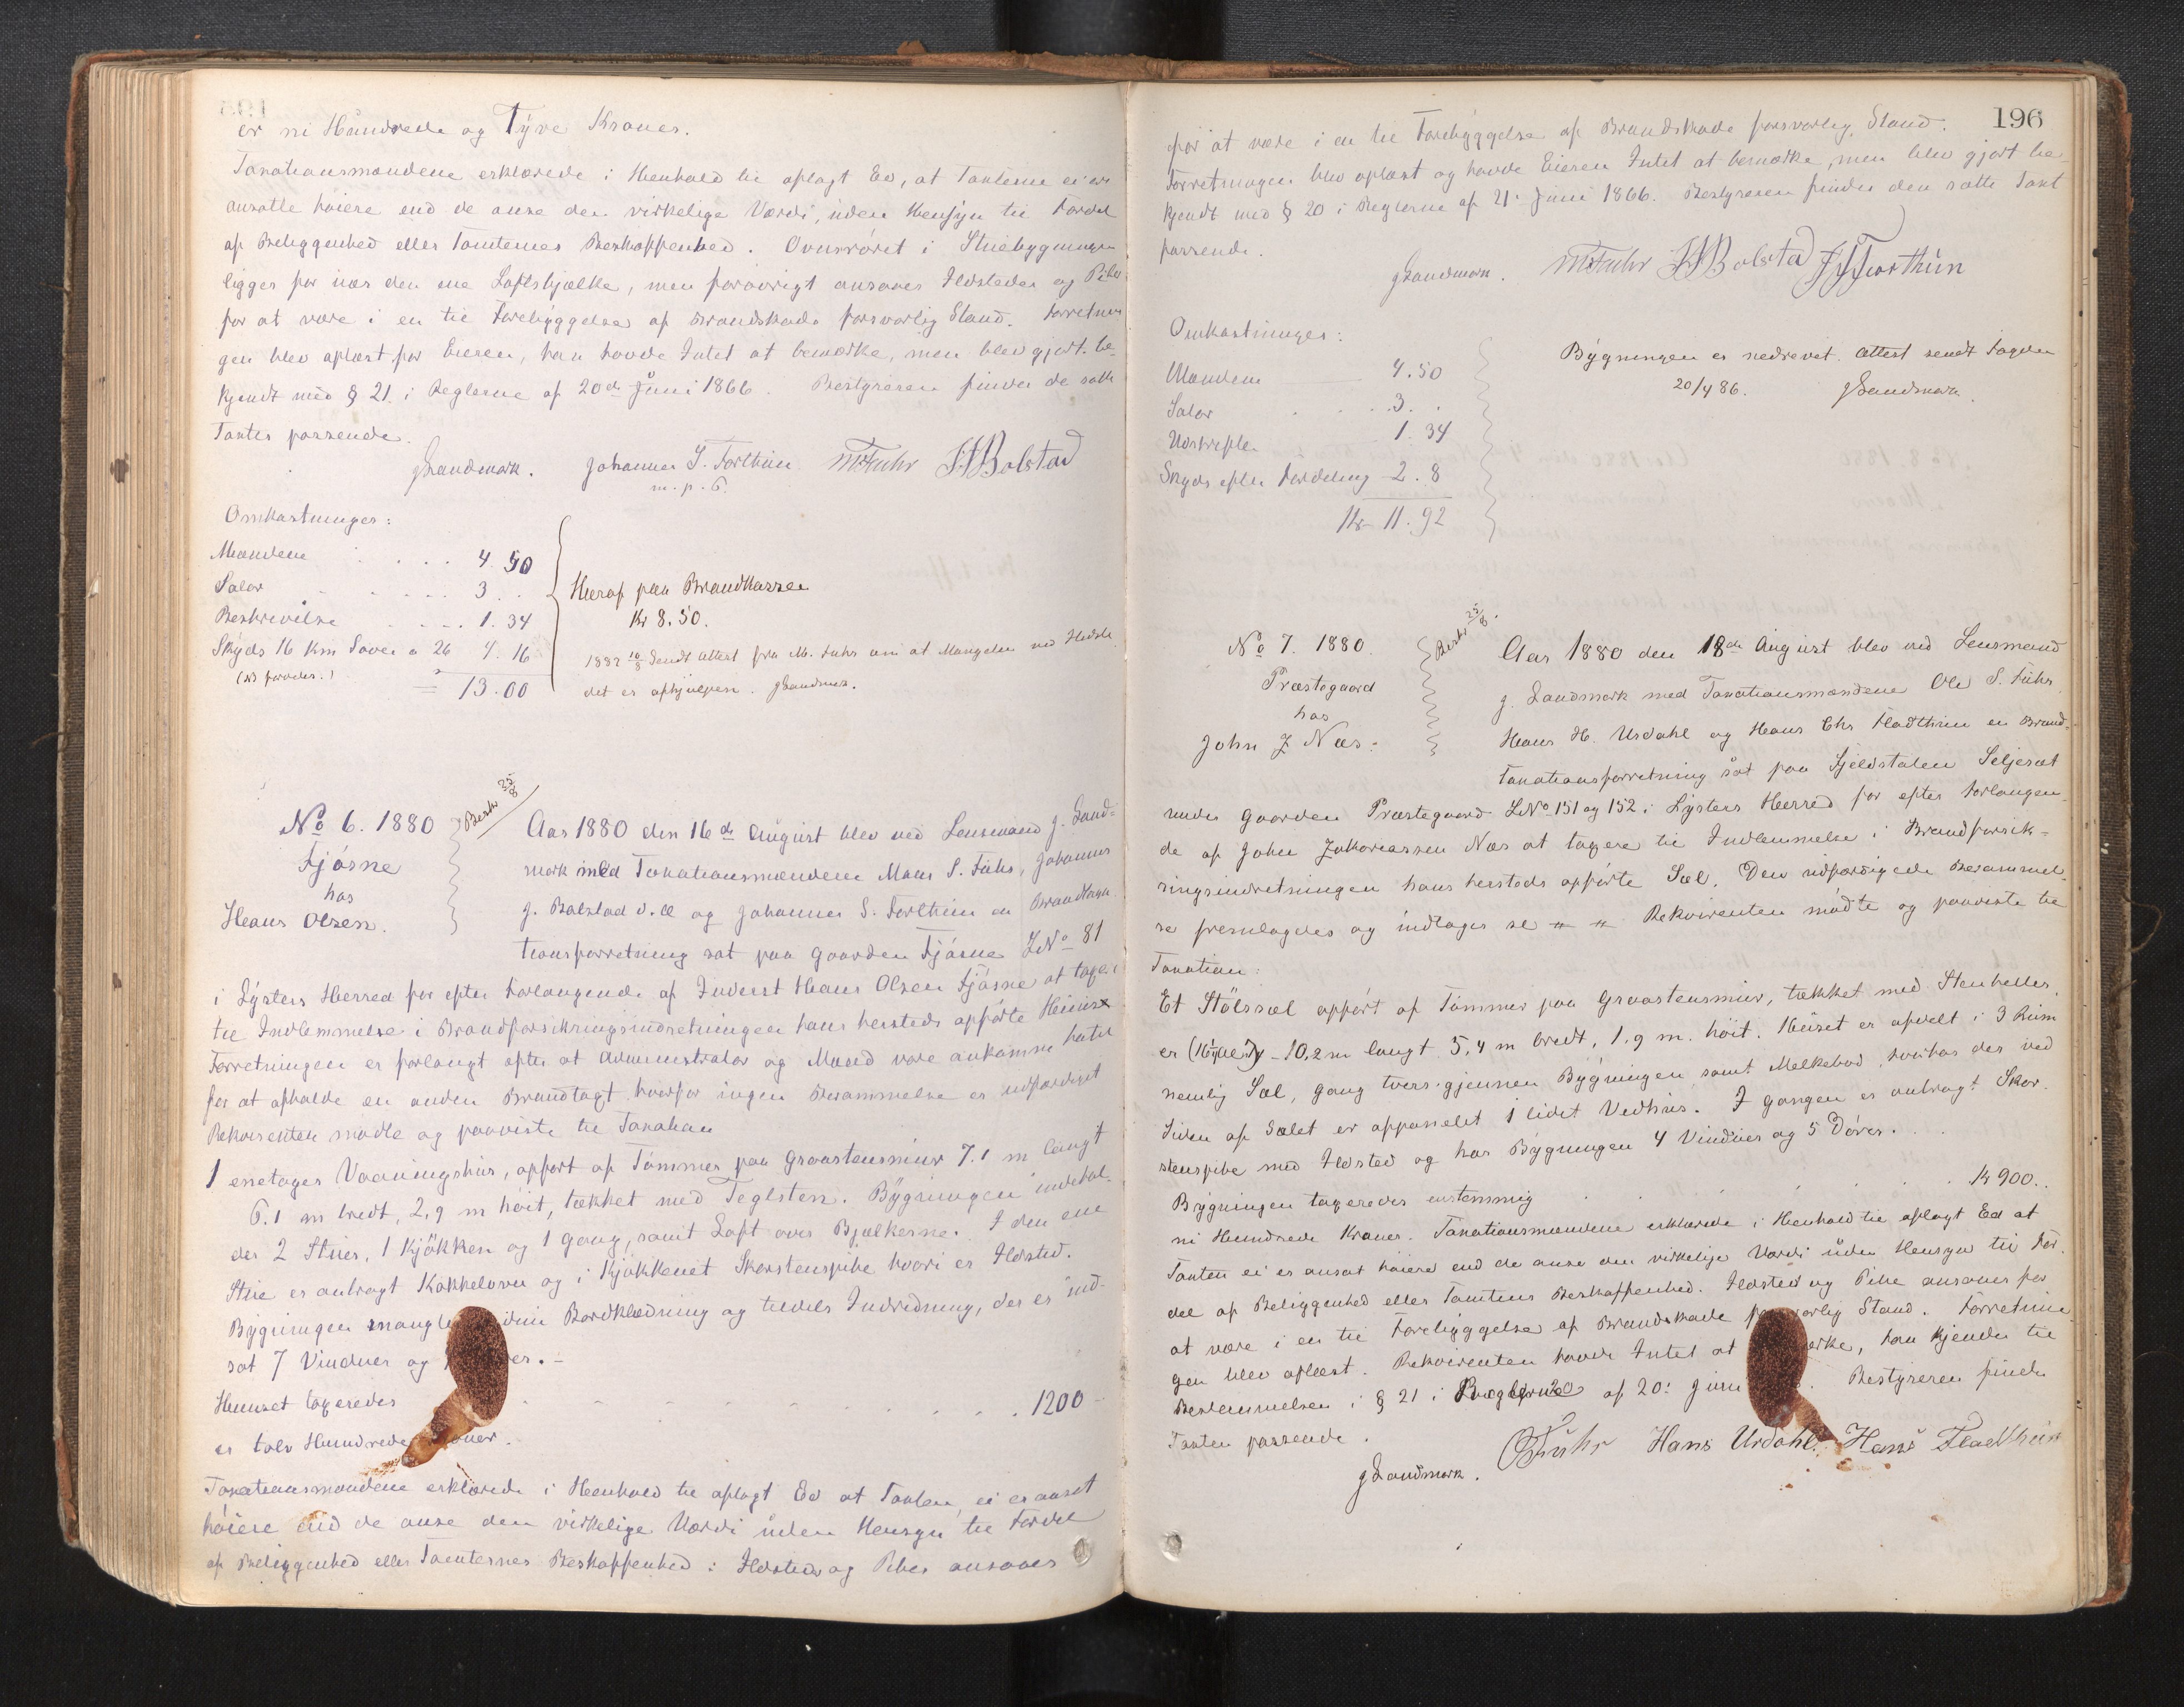 er ni Hundrede og Tyve Kroner.
Taxationsmændene erklærede i Henhold til aflagt Ed, at Taxterne ei ere
ansatte høiere end de anse den virkelige Værdi, uden Hensyn til Fordel
af Beliggenhed eller Tomternes Beskaffenhed. Ovnsrøret i Stuebygningen
ligger for nær den ene Loftsbjælke, men forøvrigt ansaaes Ildsteder og Piber
for at være i en til Forebyggelse af Brandskade forsvarlig Stand. Forretnin
gen blev oplæst for Eieren, han havde Intet at bemærke, men blev gjort be-
kjendt med § 21 i Reglerne af 20de Juni 1866. Bestyreren finder de satte
Taxter passende.
J Landmark. Johannes S. Forthun MSFuhr JJBolstad
m. p. P.
Omkostninger:
Mændene . . . . 4. 50
Salar . . . . 3. .
Beskrivelse . . . . 1. 34
Skyds 16 Km Søvei a 26 4. 16
= 13.00
Heraf paa Brandkassen
Kr 8.50.
1882 10/8 Sendt Attest fra M. Fuhr om at Mangelen ved Ildste
det er afhjulpen. JLandmark.
No 6. 1880
Fjøsne
hos
Hans Olsen.
Beskr 25/8
Aar 1880 den 16de August blev ved Lensmand J. Land-
mark med Taxationsmændene Mons S. Fuhr, Johannes
J. Bolstad d. æ og Johannes S. Forthun en Brandtaxa
tionsforretning sat paa Gaarden Fjøsne LNo 81
i Lysters Herred for efter Forlangende af Inderst Hans Olsen Fjøsne at tage
til Indlemmelse i Brandforsikringsindretningen hans hersteds opførte Huus
Forretningen er forlangt efter at Administrator og Mænd vare ankomne hertil
for at afholde en anden Brandtaxt hvorfor ingen Berammelse er udfærdiget
Rekvirenten mødte og paaviste til Taxation
1 enetages Vaaningshus, opført af Tømmer paa Graastensmuur 7.1 m langt
6.1 m bredt, 2,9 m høit, tækket med Teglsten. Bygningen indehol-
der 2 Stuer, 1 Kjøkken og 1 Gang, samt Loft over Bjælkerne. I den ene
Stue er anbragt Kakkelovn og i Kjøkkenet Skorstenspibe hvori er Ildsted.
Bygningen mangler Bordklædning og tildels Indredning, der er ind-
sat 7 Vinduer og
Huuset taxeredes . . . 1200 -
er tolv Hundrede Kroner.
Taxationsmændene erklærede i Henhold til aflagt Ed at Taxten ei er ansat
høiere end de anse den virkelige Værdi uden Hensyn til Fordel
af Beliggenhed eller Tomternes Beskaffenhed: Ildsted og Piber ansaaes
196
for at være i en til Forebyggelse af Brandskade forsvarlig Stand.
Forretningen blev oplæst og havde Eieren Intet at bemærke, men blev gjort be-
kjendt med § 20 i Reglerne af 21. Juni 1866. Bestyreren finder den satte Taxt
passende.
JLandmark. MSFuhr JJBolstad JSForthun
Omkostninger:
Mændene 4.50
Salar . . . 3. .
Udskrifter 1. 34
Skyds efter Fordeling 2. 8
Kr 11. 92
Bygningen er nedrevet. Attest sendt Fogden
20/4 86. JLandmark.
No 7. 1880.
Præstegaard
hos
John Z Næs.
Beskr 25/8.
Aar 1880 den 18de August blev ved Lensmand
J. Landmark med Taxationsmændene Ole S. Fuhr
Hans H. Urdahl og Hans Chr Fladthun en Brand-
taxationsforretning sat paa Fjeldstølen Seljesæt
under Gaarden Præstegaard LNo 151 og 152 i Lysters Herred for efter Forlangen-
de af John Zakariassen Næs at taxere til Indlemmelse i Brandforsik-
ringsindretningen hans hersteds opførte Sæl. Den udfærdigede Berammel-
se fremlagdes og indtages se " " Rekvirenten mødte og paaviste til
Taxation:
Et Stølssæl opført af Tømmer paa Graastensmuur, tækket med Stenheller,
er 10,2 m langt 5,4 m bredt, 1,9 m. høit. Huset er afdelt i 3 Rum
nemlig Sæl, Gang tvers igjennem Bygningen samt Melkebod, hvorhos der ved
Siden af Sælet er oppanelet 1 lidet Vedhus. I Gangen er anbragt Skor-
stenspibe med Ildsted og har Bygningen 4 Vinduer og 5 Døre. . .
Bygningen taxeredes enstemmig . . . Kr 900..
ni Hundrede Kroner. Taxationsmændene erklærede i Henhold til aflagt Ed at
Taxten ei er ansat høiere end de anse den virkelige Værdi uden Hensyn til For-
del af Beliggenhed eller Tomtens Beskaffenhed. Ildsted og Pibe ansaaes for
at være i en til Forebyggelse af Brandskade forsvarlig Stand. Forretnin
gen blev oplæst. Rekvirenten havde Intet at bemærke, han kjender til
Bestemmelsen i § 21 i Reglerne af 20. Juni Bestyreren finder
Taxten passende.
JLandmark. OSFuhr Hans Urdahl. Hans Fladthun